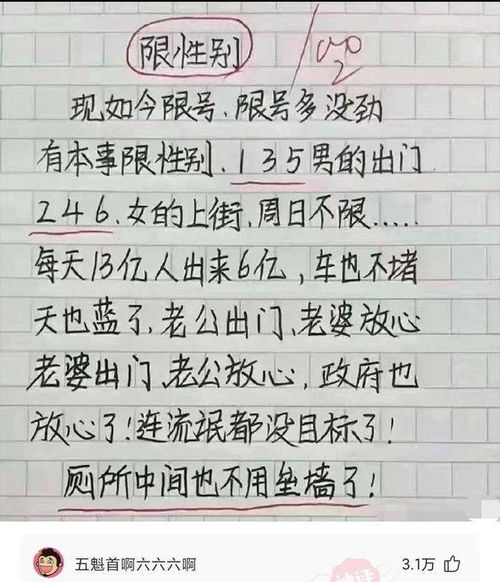 限性别
现如今限号、限号多没劲
有本事限性别、135男的出门
246、女的上街,周日不限.....
每天13亿人出来6亿,车也不堵
天也蓝了、老公出门、老婆放心
老婆出门、老公放心,政府也
放心了!连流氓都没目标了!
厕所中间也不用垒墙了!
五魁首啊六六六啊
3.1万